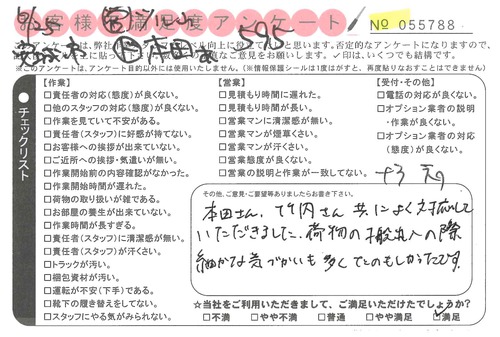 お客様満足度アンケート
No 055788
595
本アンケートは、弊社
※このアンケートは、アンケート目的以外には使用いたしません。(※情報保護シールは1度はがすと、再度貼りなおすことはできません)
チェックリスト
【作業】
□責任者の対応(態度)が良くない。
□他のスタッフの対応(態度)が良くない。
□作業を見ていて不安がある。
□責任者(スタッフ)に好感が持てない。
□お客様への挨拶が出来ていない。
□ご近所への挨拶・気遣いが無い。
□作業開始前の内容確認がなかった。
□作業開始時間が遅れた。
□荷物の取り扱いが雑である。
□お部屋の養生が出来ていない。
□作業時間が長すぎる。
□責任者(スタッフ)に清潔感が無い。
□責任者(スタッフ)が汗くさい。
□トラックが汚い。
□梱包資材が汚い。
□運転が不安(下手)である。
□靴下の履き替えをしてない。
□スタッフにやる気がみられない。
【営業】
□見積もり時間に遅れた。
□見積もり時間が長い。
□営業マンに清潔感が無い。
□営業マンが煙草くさい。
□営業マンが汗くさい。
□営業態度が良くない。
□営業の説明と作業が一致してない。
【受付・その他】
□電話の対応が良くない。
□オプション業者の説明
・作業が良くない。
□オプション業者の対応
(態度)が良くない。
その他、ご意見・ご要望等ありましたらお書き下さい。
本田さん、竹内さん共によく対応して
いただきました。荷物の搬出入の際
細かな気づかいも多くてたのもしかったです。
☆当社をご利用いただきまして、ご満足いただけたでしょうか?
□不満 □やや不満 □普通 □やや満足 ☑満足